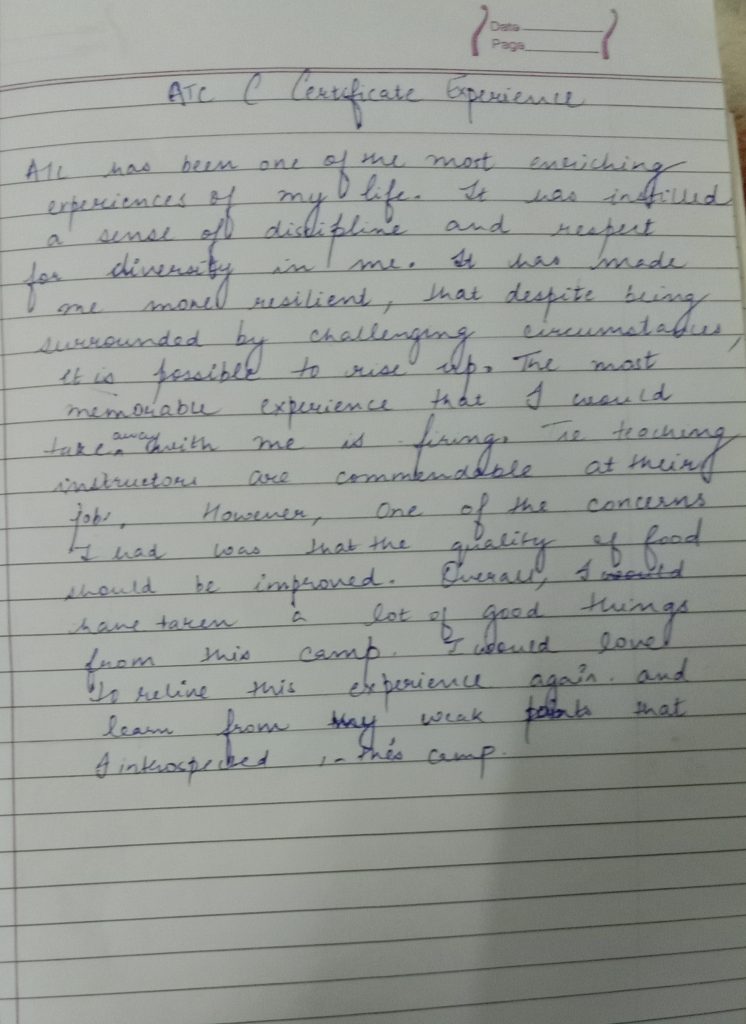 Date
Page
ATC C Certificate Experience
ATC has been one of the most enriching
experiences of my life. It has instilled
a sense of discipline and respect
for diversity in me. It has made
me more resilient, that despite being
surrounded by challenging circumstances,
it is possible to rise up. The most
memorable experience that I would
take away with me is firing. The teaching
instructors are commendable at their
job. However, one of the concerns
I had was that the quality of food
should be improved. Overall, I would
have taken a lot of good things
from this camp. I would love
to relive this experience again. and
learn from my weak points that
I introspected in this camp.